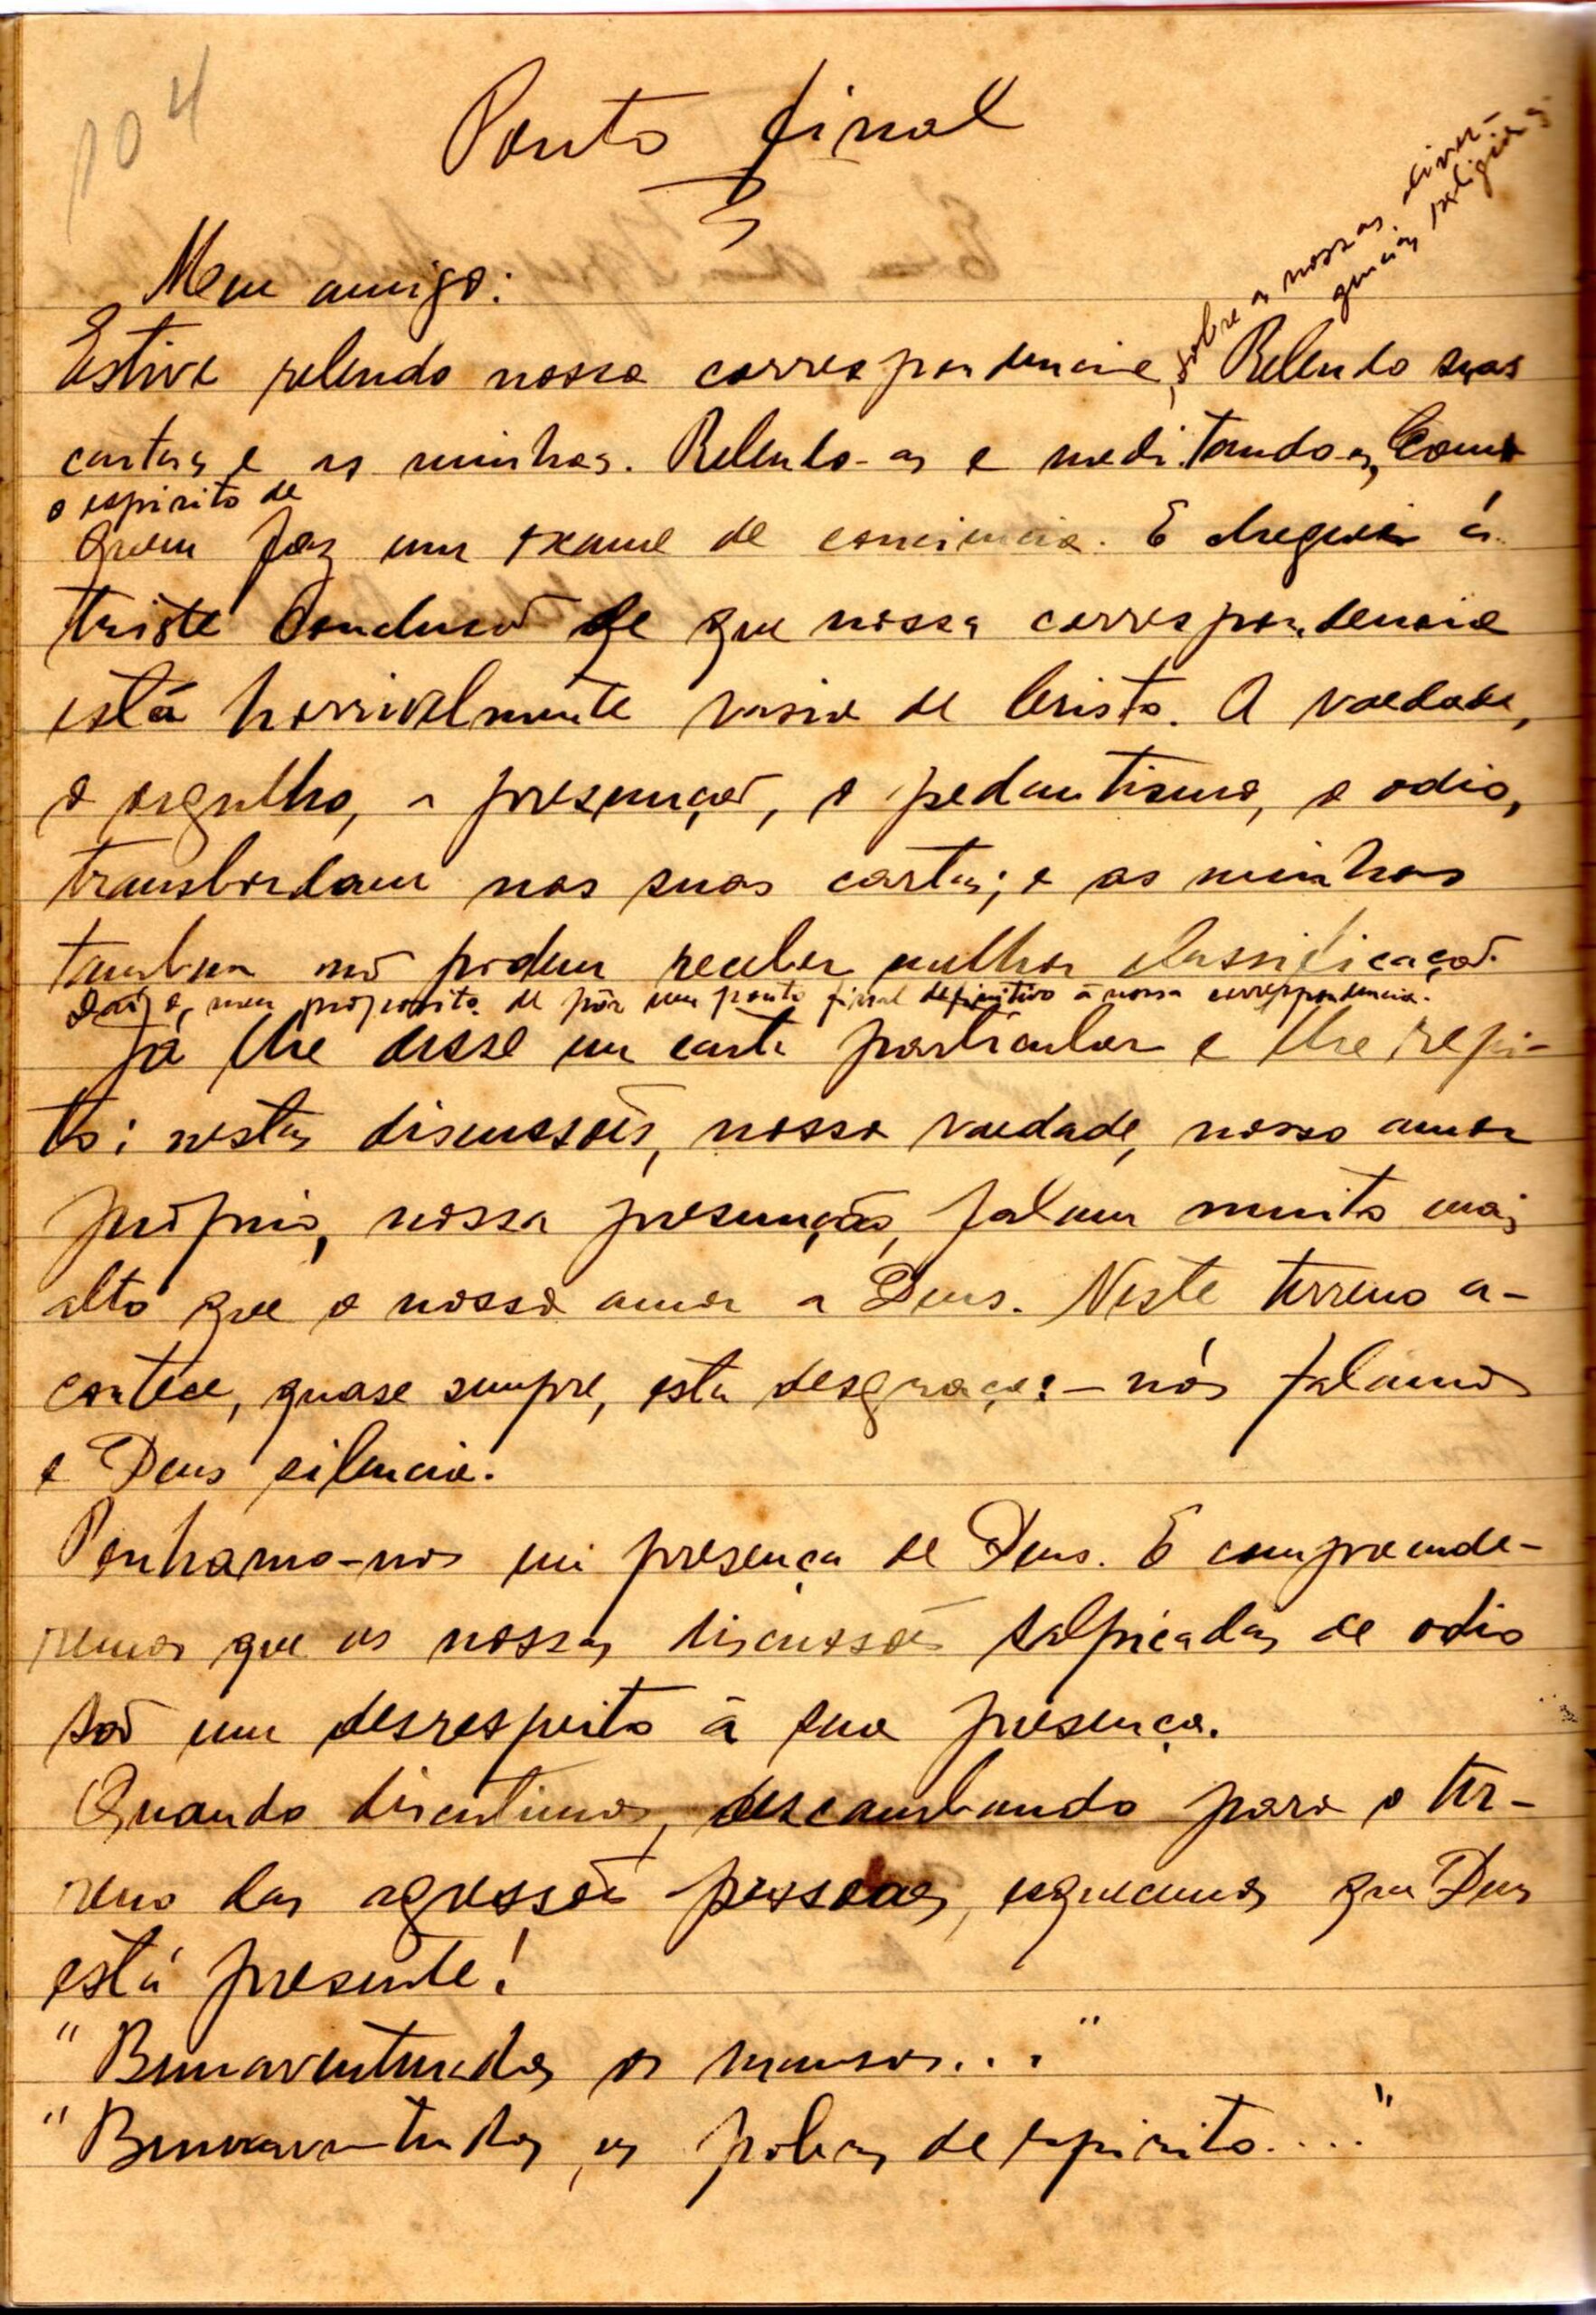 104
Ponto final
Meu amigo:
Estive relendo nossa correspondencia, sobre as nossas diver-
gencias religiosas. Relendo suas
cartas e as minhas. Relendo-as e meditando-as, com
o espirito de
quem faz um exame de conciencia. E cheguei á
triste conclusaõ de que nossa correspondencia
está horrivelmente vasia de Cristo. A vaedade,
o orgulho, a presunçaõ, o pedantismo, o odio,
transbordam nas suas cartas; e as minhas
tambem naõ podem receber melhor classificaçaõ.
Daí o meu proposito de pôr um ponto final definitivo á nossa correspondencia.
Já lhe disse em carta particular e lhe repi-
to: nestas discussoẽs, nossa vaedade, nosso amor
próprio, nossa presunção, falam muito mais
alto que o nosso amor a Deus. Neste terreno a-
contece, quase sempre, esta desgraça: - nós falamos
e Deus silencia.
Ponhamo-nos em presença de Deus. E compreende-
remos que as nossas discussoẽs salpicadas de odio
saõ um desrespeito á sua presença.
Quando discutimos, descambando para o ter-
reno das agressoẽs pessoaes, esquecemos que Deus
está presente!
"Bemaventurados os mansos..."
"Bemaventurados os pobres de espirito...."